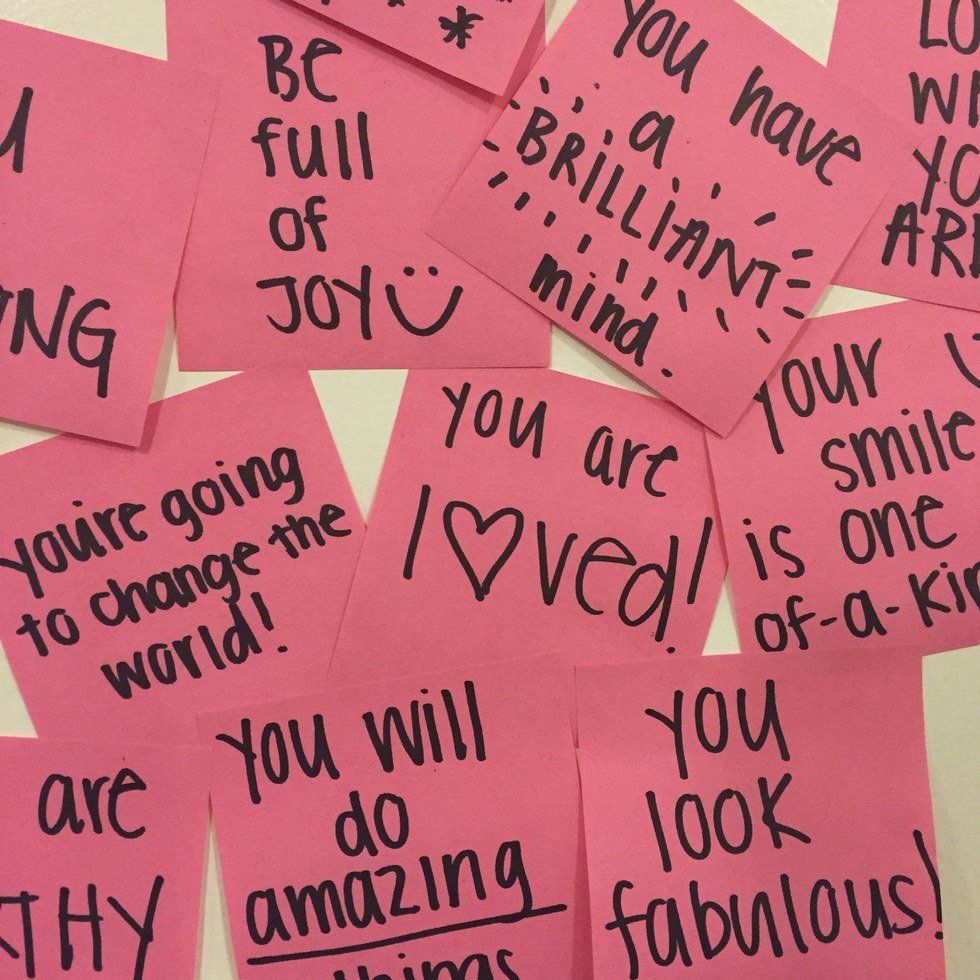 * * *
NG
BE
full
of
JOY
You have
a
BRILLIANT
mind.
LO
WH
YO
ARE
you're going
to change the
world!
you are
loved!
Your
smile
is one
of-a-kin
are
THY
You will
do
amazing
things
you
look
fabulous!